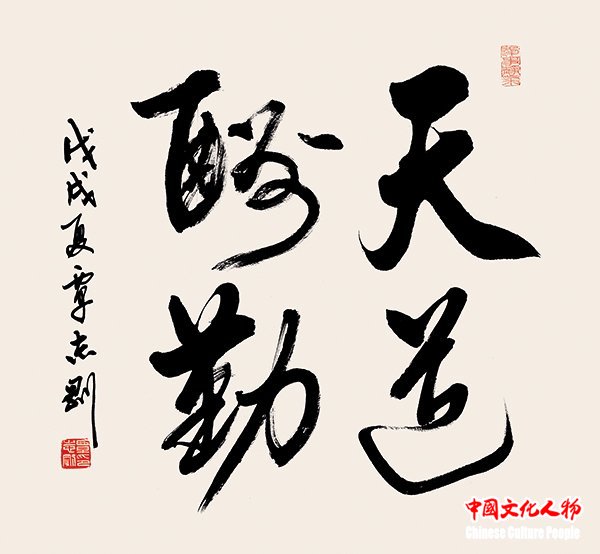 天道
酬勤
戊戌夏覃志刚
中國文化人物
Chinese Culture People